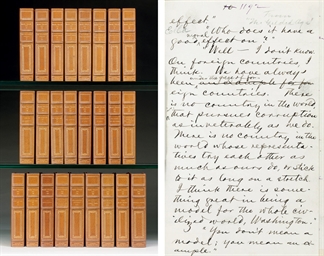 to 1192
effect."
"Who does it have a
good effect on?"
"Well — I don't know.
On foreign countries, I
think. We have always
been
eign countries. There
is no country in the world,
that pursues corruption
as inveterately as we do.
There is no country in the
world whose representa-
tives try each other as
much as ours do, or stick
to it as long on a stretch.
I think there is some-
thing great in being a
model for the whole civ-
ilized world, Washington."
"You don't mean a
model; you mean an ex-
ample."